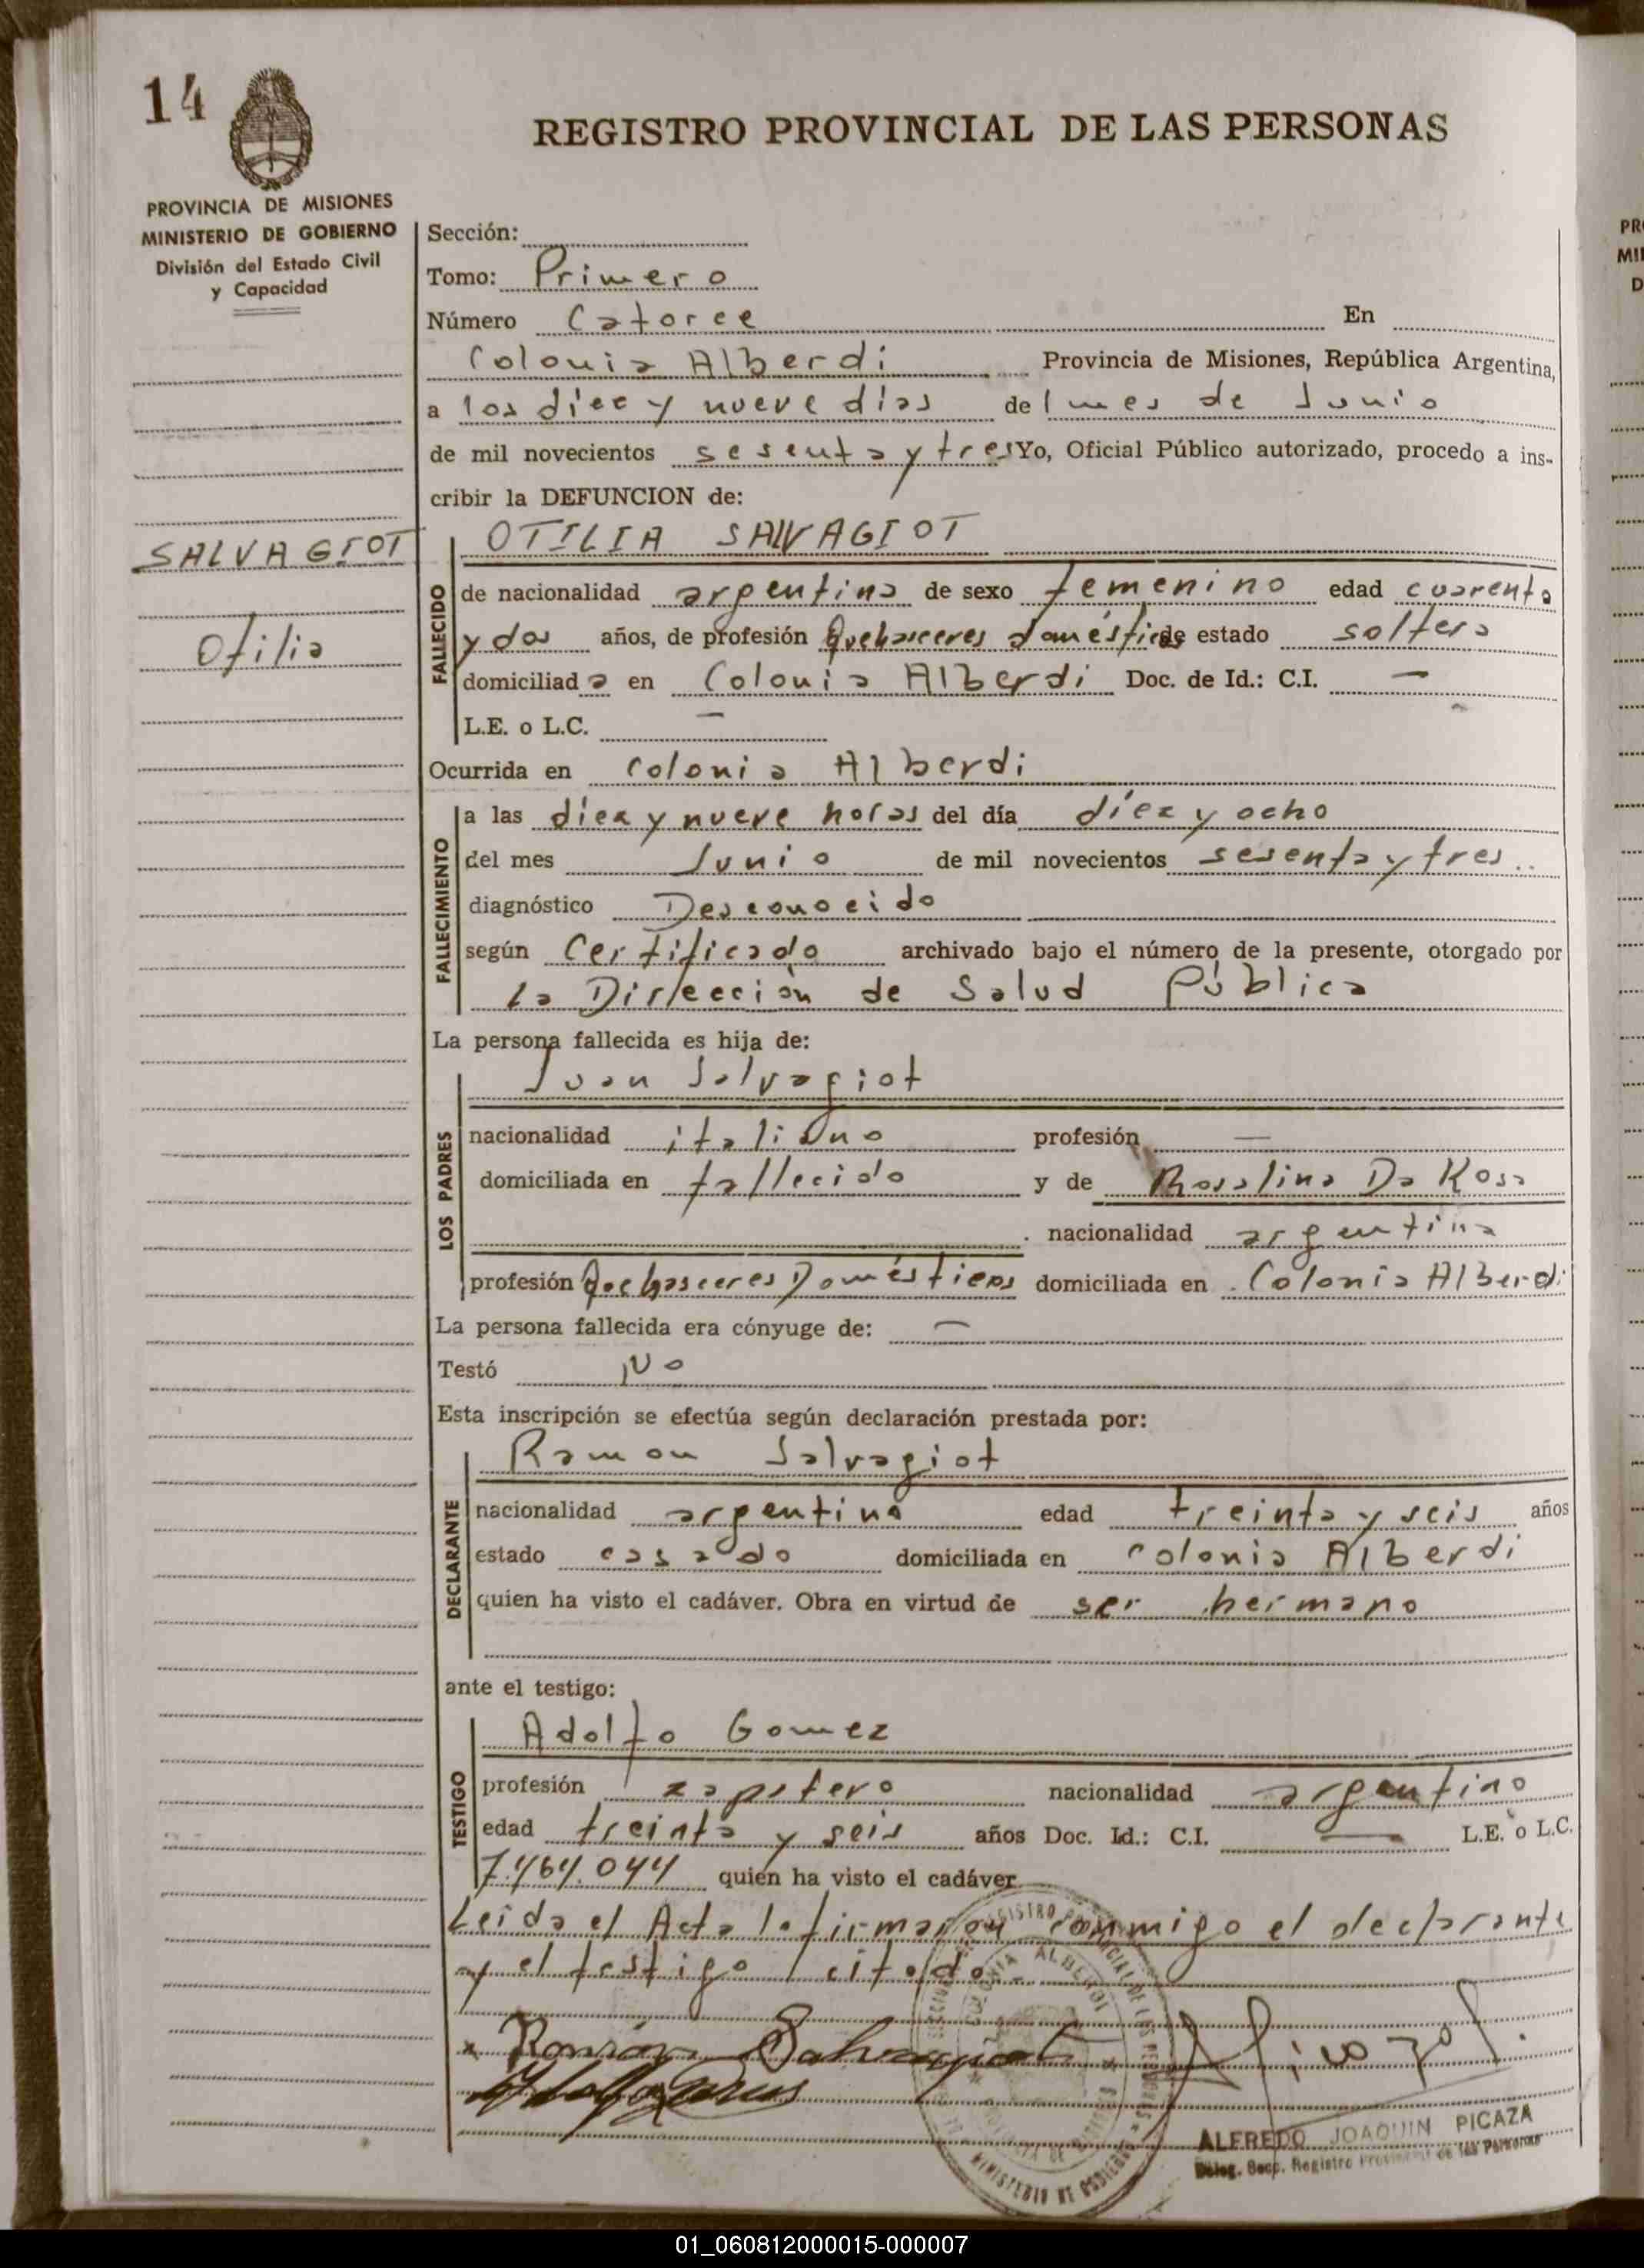 14
REGISTRO PROVINCIAL DE LAS PERSONAS
PROVINCIA DE MISIONES
MINISTERIO DE GOBIERNO
División del Estado Civil
y Capacidad
Sección:
Tomo: Primero
Número Catorce En
Colonia Alberdi Provincia de Misiones, República Argentina,
a los diez y nueve dias del mes de Junio
de mil novecientos sesenta y tres Yo, Oficial Público autorizado, procedo a ins-
cribir la DEFUNCION de:
SALVAGIOT
Otilia
FALLECIDO
OTILIA SALVAGIOT
de nacionalidad argentina de sexo femenino edad cuarenta
y dos años, de profesión Quehasceres domésticos de estado soltera
domiciliada en Colonia Alberdi Doc. de Id.: C.I. —
L.E. o L.C. —
Ocurrida en Colonia Alberdi
FALLECIMIENTO
a las diez y nueve horas del día diez y ocho
del mes Junio de mil novecientos sesenta y tres
diagnóstico Desconocido
según Certificado archivado bajo el número de la presente, otorgado por
la Dirección de Salud Pública
La persona fallecida es hija de:
LOS PADRES
Juan Salvagiot
nacionalidad italiano profesión —
domiciliada en fallecido y de Rosalina Da Rosa
nacionalidad argentina
profesión Quehasceres Domésticos domiciliada en Colonia Alberdi
La persona fallecida era cónyuge de: —
Testó No
Esta inscripción se efectúa según declaración prestada por:
DECLARANTE
Ramon Salvagiot
nacionalidad argentino edad treinta y seis años
estado casado domiciliada en Colonia Alberdi
quien ha visto el cadáver. Obra en virtud de ser hermano
ante el testigo:
TESTIGO
Adolfo Gomez
profesión zapatero nacionalidad argentino
edad treinta y seis años Doc. Id.: C.I. — L.E. o L.C.
7.464.044 quien ha visto el cadáver
Leida el Acta la firmaron conmigo el declarante
y el testigo citado.
x Ramón
REGISTRO PROVINCIAL DE LAS PERSONAS
COLONIA ALBERDI
MINISTERIO DE GOBIERNO
ALFREDO JOAQUIN PICAZA
Deleg. Secc. Registro Provincial de las Personas
01_060812000015-000007